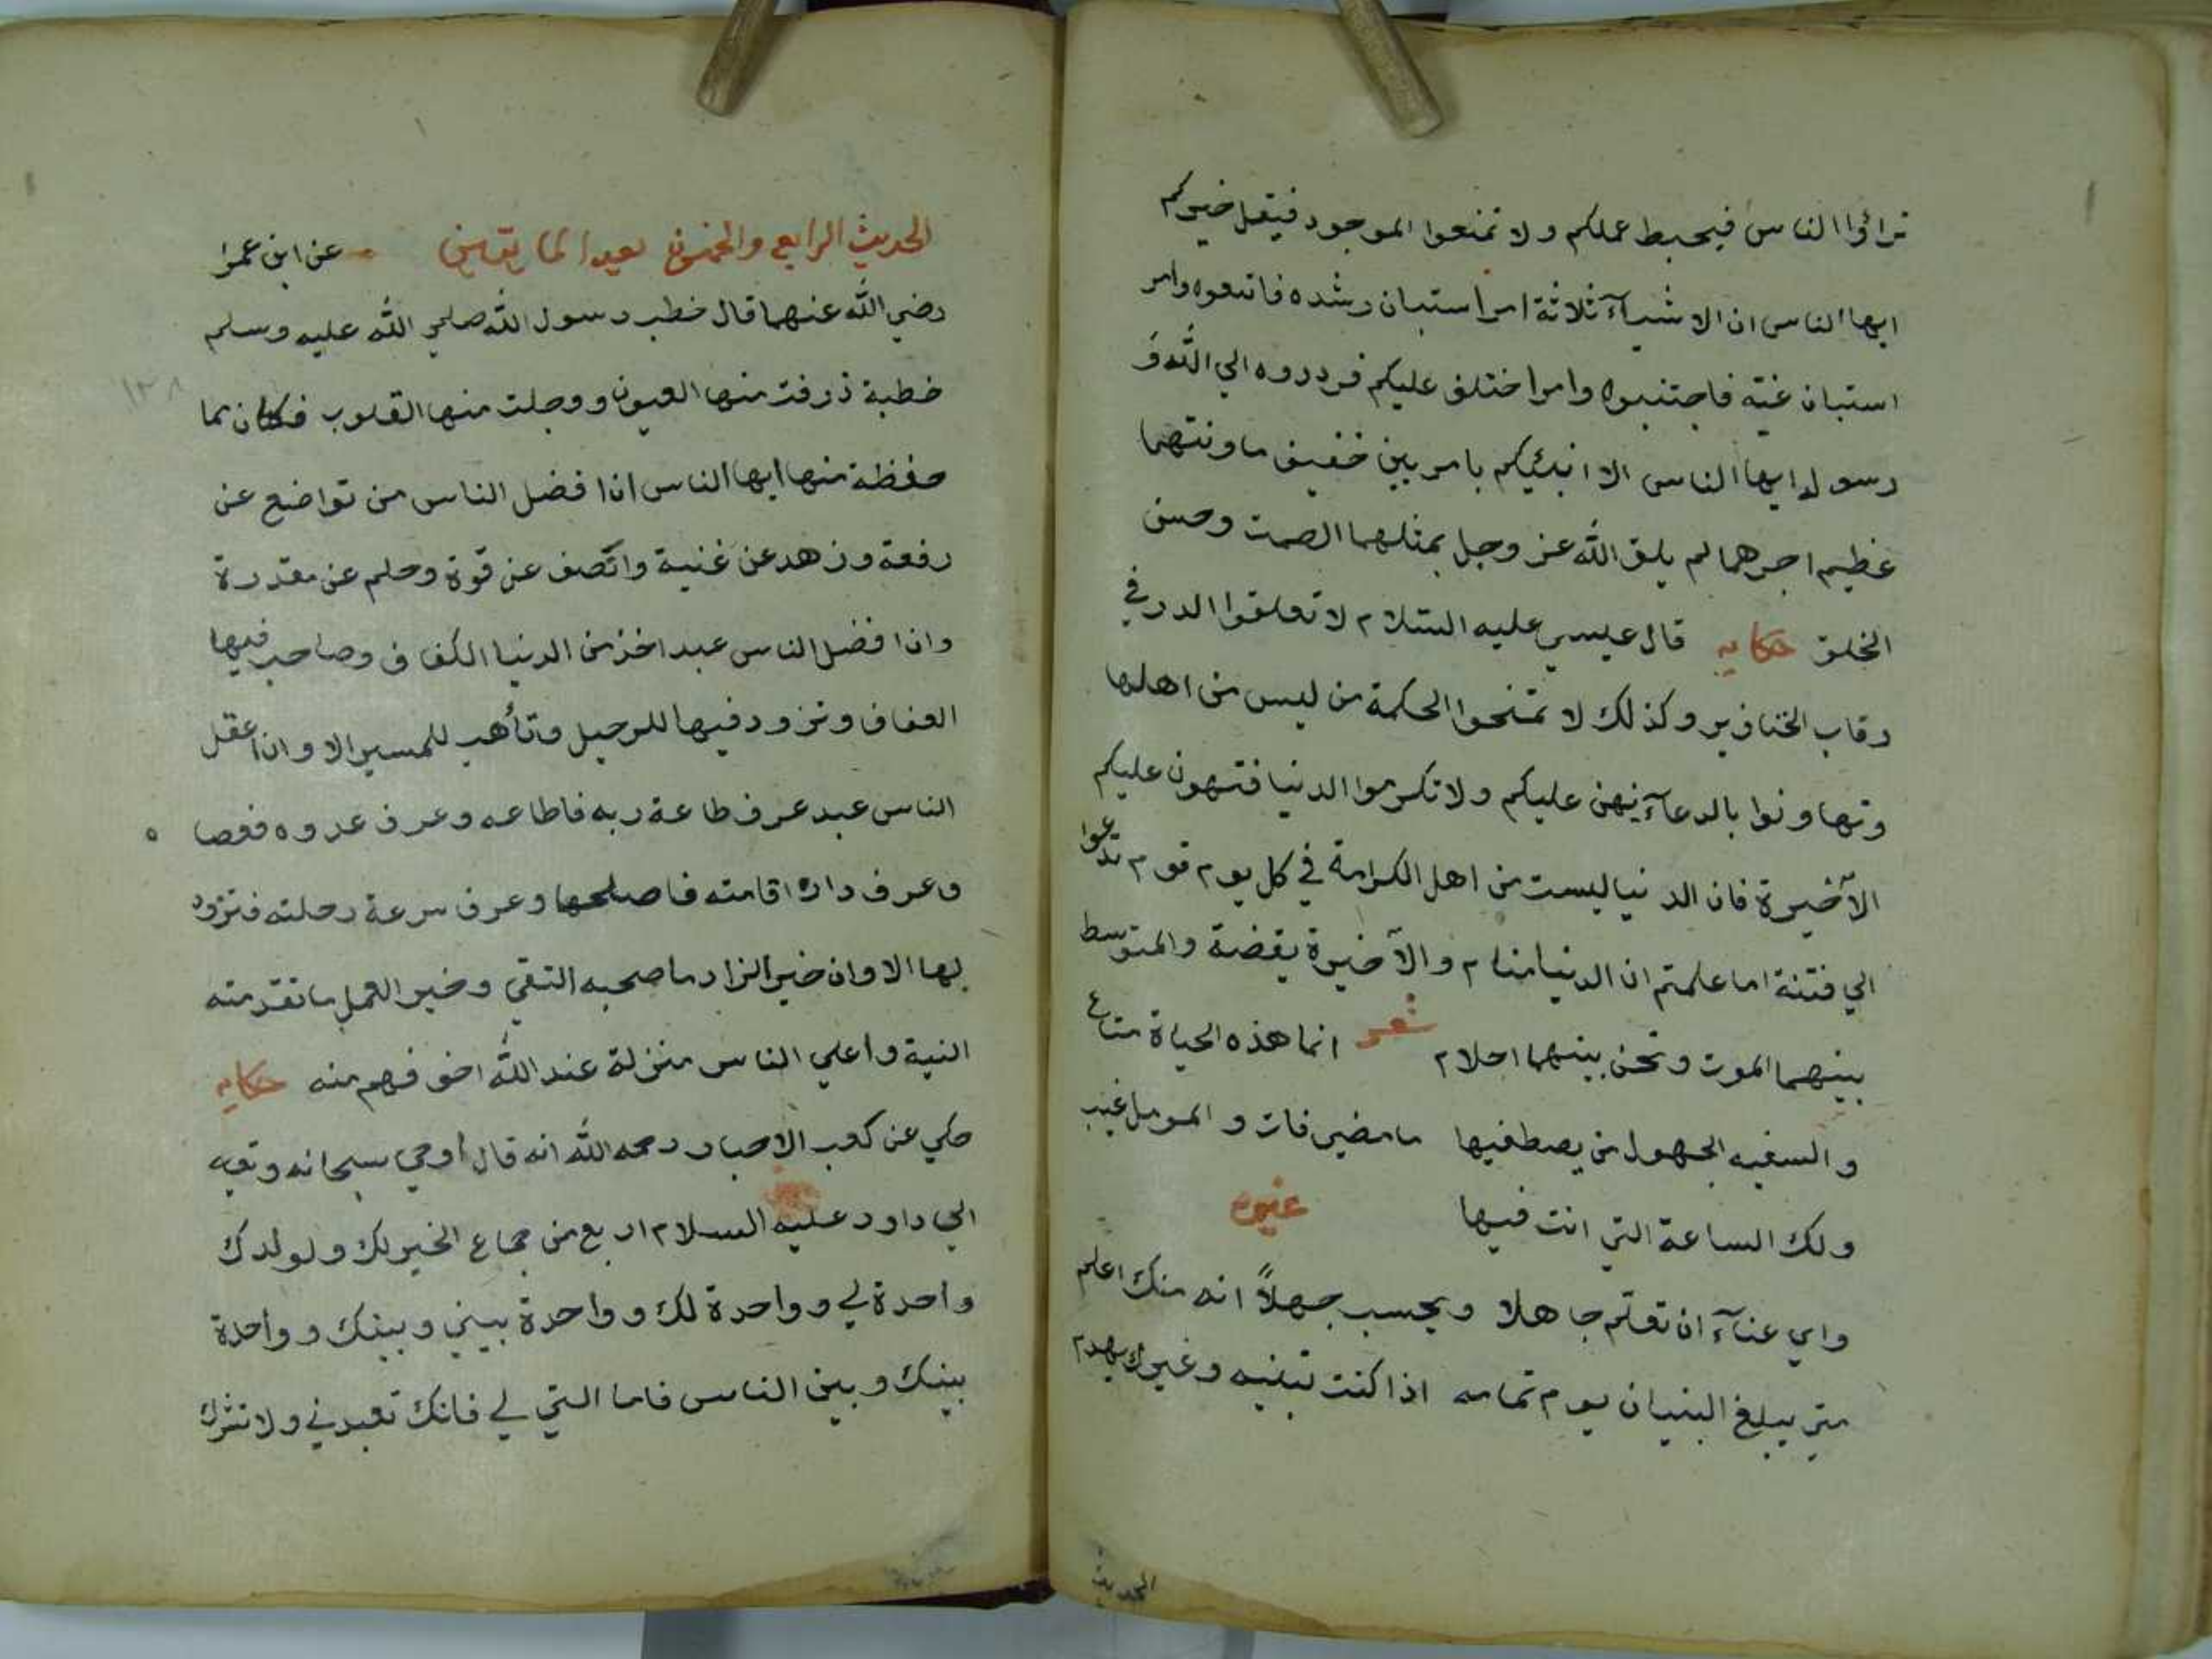 تراؤا الناس فيحبط عملكم ولا تمنعوا الموجود فيقل خيركم
ايها الناس ان الاشيآء ثلاثة امر استبان رشده فاتبعوه وامر
استبان غيّه فاجتنبوه وامرا ختلف عليكم فردروه الي الله و
رسوله ايها الناس الا انبئيكم بامربين خفيف ماونتهما
عظيم اجرهما لم يلق الله عز وجل بمثلهما الصمت وحسن
الخلق حكايه قال عيسي عليه السلام لا تعلقوا الدر في
رقاب الخنازير وكذلك لا تمنحوا الحكمة من ليس من اهلها
وتهاونوا بالدعآء يهن عليكم ولا تكرموا الدنيا فتهون عليكم
الآخيرة فان الدنيا ليست من اهل الكرامة في كل يوم قوم تدعوا
الي فتنة اما علمتم ان الدنيا منام والآخيرة يقضة والمتوسط
بينهما الموت ونحن بينهما احلام شعر انما هذه الحياة متاع
والسفيه الجهول من يصطفيها مامضي فات والمومل غيب
ولك الساعة التي انت فيها غيره
واي عنآء ان تعلّم جاهلا ويحسب جهلاً انه منك اعلم
متي يبلغ البنيان يوم تمامه اذا كنت تبنيه وغيرك يهدم
الحديث
الحديث الرابع والخمسون عن ابن عمر
رضي الله عنهما قال خطب رسول الله صلي الله عليه وسلم
خطبة ذرفت منها العيون ووجلت منها القلوب فكان مما
حفظة منها ايها الناس ان افضل الناس من تواضع عن
رفعة وزهد عن غنية واتّصف عن قوة وحلم عن مقدرة
وان افضل الناس عبد اخذ من الدنيا الكفاف وصاحب فيها
العفاف وتزود فيها للرحيل وتأهب للمسير الا وان اعقل
الناس عبد عرف طاعة ربه فاطاعه وعرف عدوه فعصا ه
وعرف دار اقامته فاصلحها وعرف سرعة رحلته فتزود
لها الا وان خير الزاد ما صحبه التقي وخير العمل ما تقدمته
النية واعلي الناس منزلة عند الله اخوفهم منه حكايه
حكي عن كعب الاحبار رحمه الله انه قال اوحي سبحانه وتعـ
الي داود عليه السلام اربع من جماع الخير لك ولولدك
واحدة لي وواحدة لك وواحدة بيني وبينك وواحدة
بينك وبين الناس فاما التي لي فانك تعبدني ولا تشرك